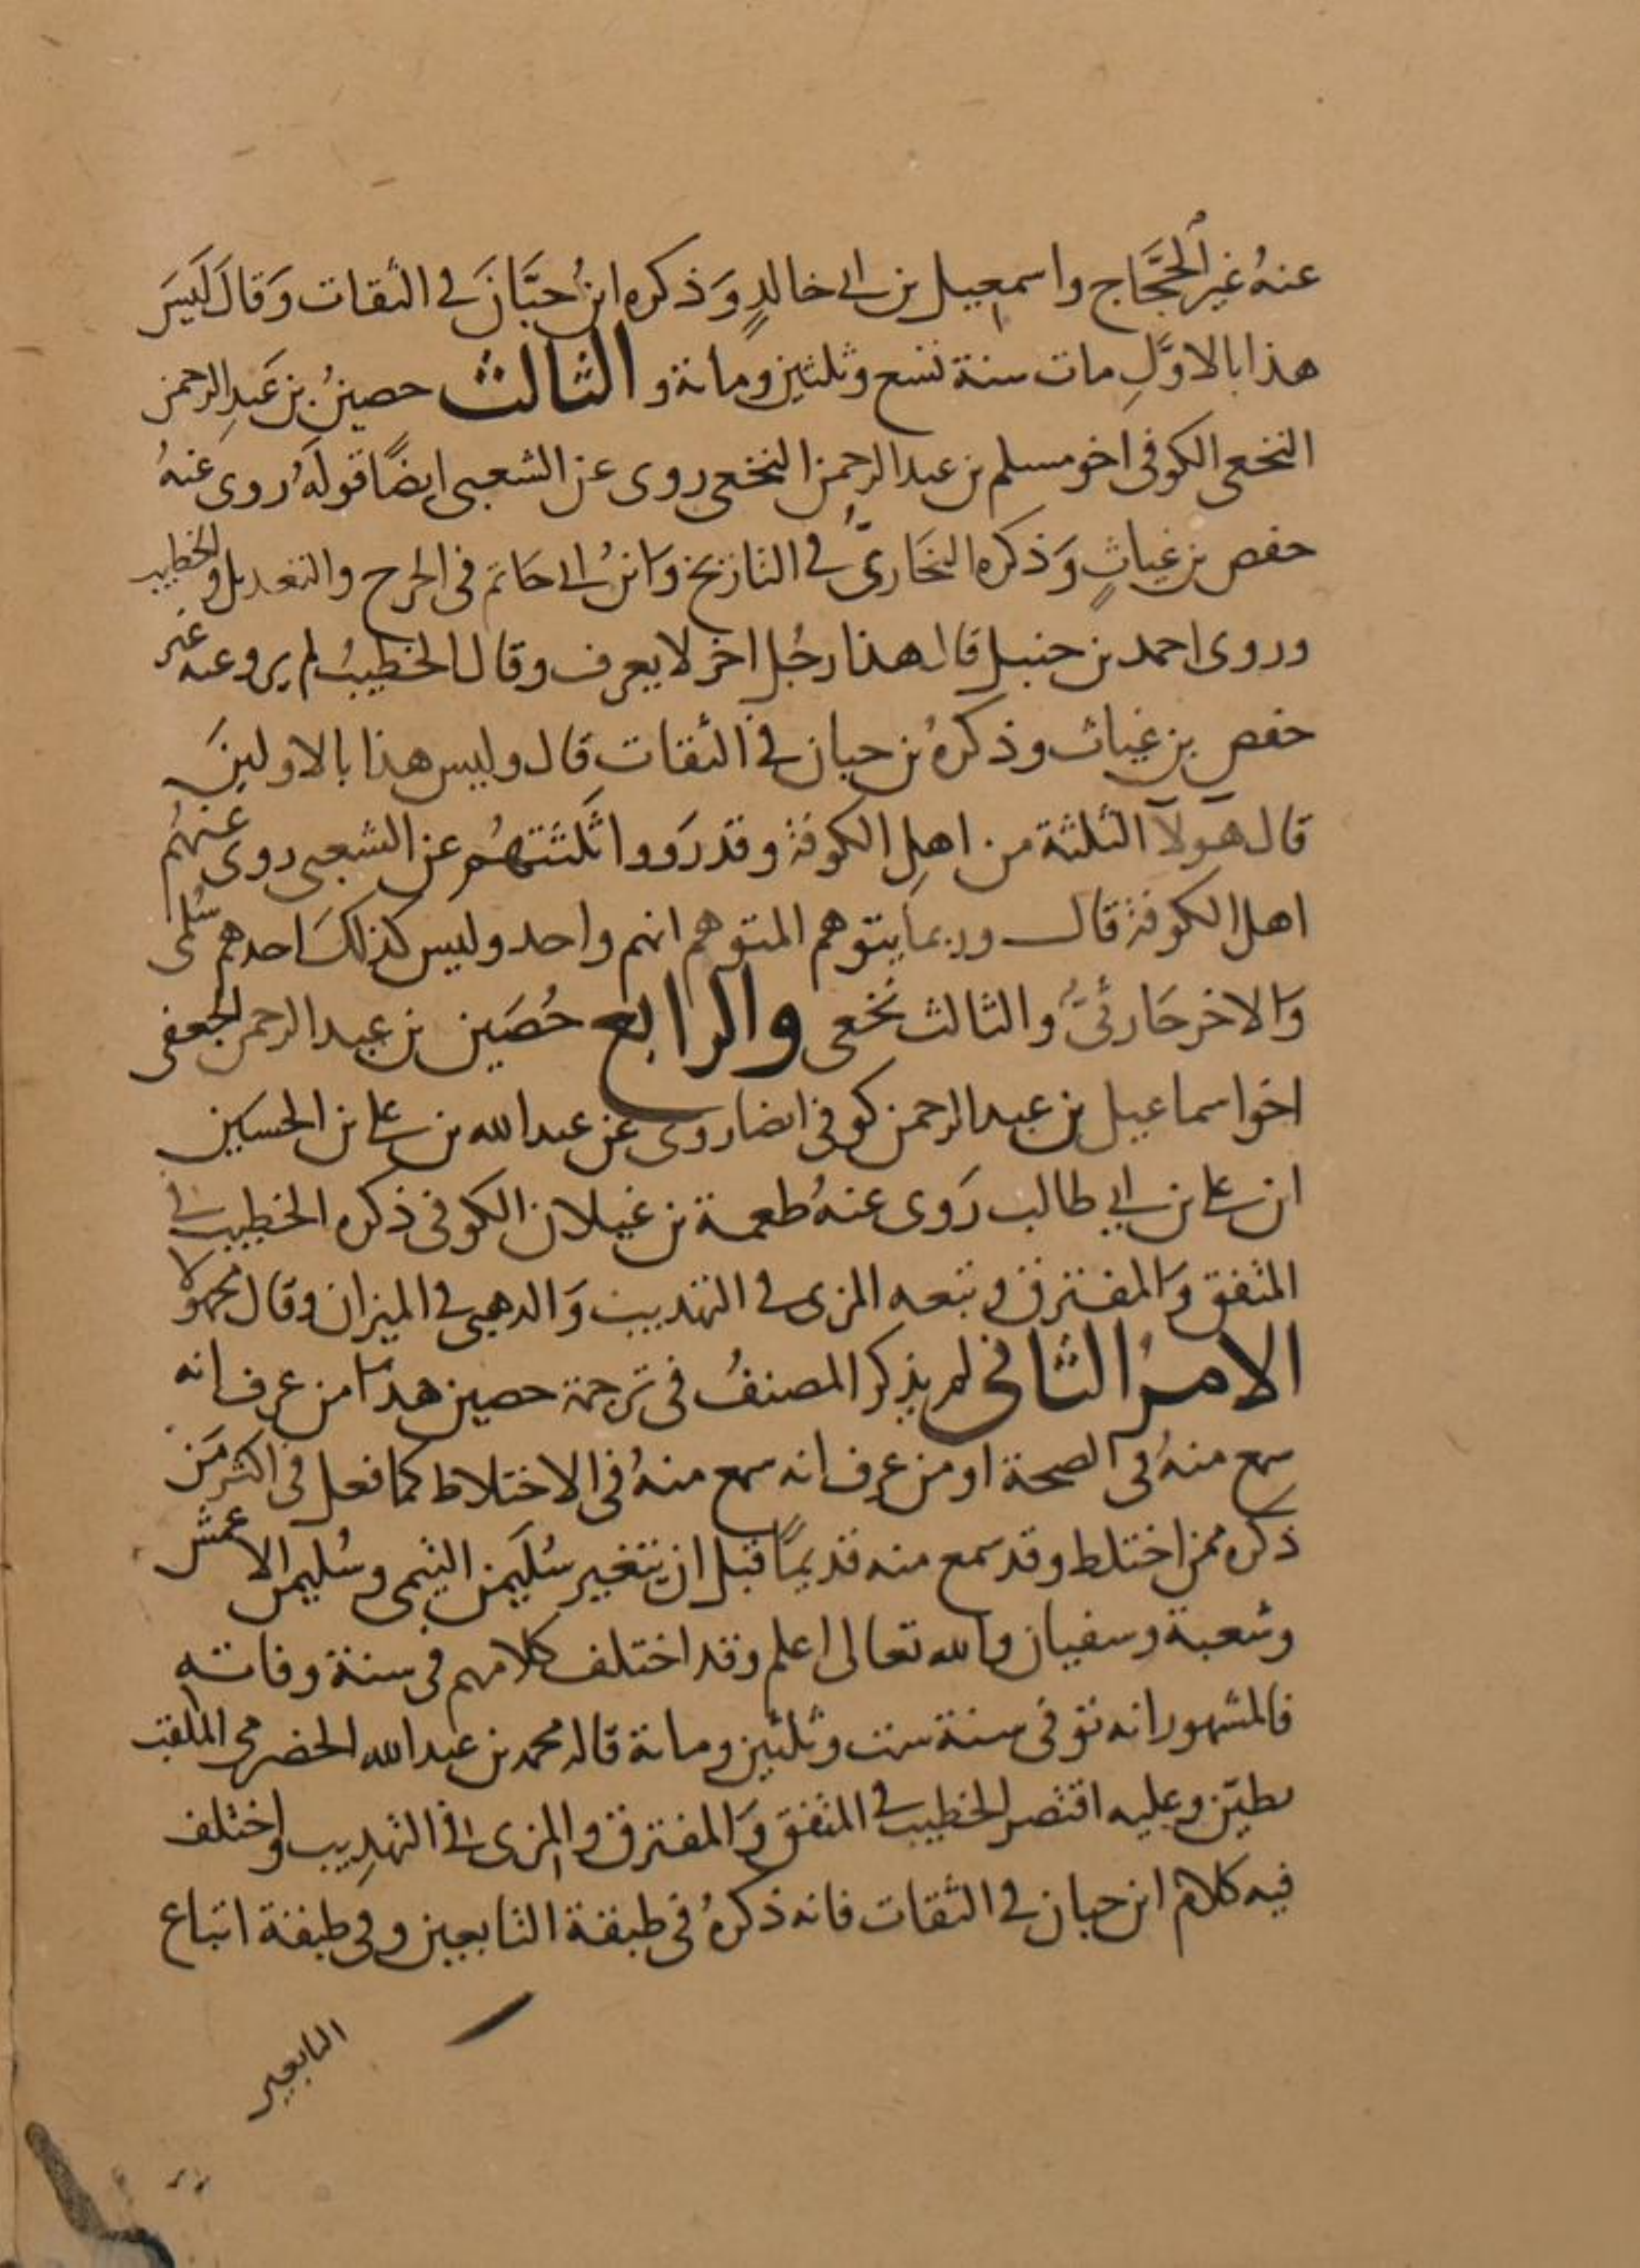 عنهُ غير الحجَّاج واسمعيل بن ابي خالدٍ وَذكره ابنُ حبَّانَ في الثقات وَقالَ لَيسَ
هذا بالاوَّلِ مات سنة تسع وثلثين ومائة و الثالث حصينُ بن عَبدِ الرحمن
النخعى الكوفى اخو مسلم بن عبد الرحمن النخعى روى عن الشعبى ايضًا قولَهُ روى عنهُ
حفص بن غياثٍ وَذكره البخَارىُّ في التاريخ وَابنُ ابي حَاتم فى الجرح والتعديل والخطيب
وروى احمد بن حنبل قال هذا رجُل اخر لا يعرف وقال الخطيبُ لم يرو عنه غير
حفص بن غياث وذكرهُ بن حبان في الثقات قال وليس هذا بالاولينَ
قال هولآ الثلثة من اهلِ الكوفة وقد رَووا ثَلثتهُم عن الشعبى روى عنهُم
اهل الكوفة قال وربما يتوهم المتوهم انهم واحد وليس كذلكَ احدهم سُلمى
وَالاخر حَارثىُّ والثالث نخعى والرابع حُصَين بن عبد الرحمن الجعفى
اخو اسماعيل بن عبد الرحمن كوفى ايضا روى عن عبد الله بن على بن الحسين
ابن على بن ابي طالب رَوى عنهُ طعمة بن غيلان الكوفى ذكره الخطيب في
المتفق وَالمفترق وتبعه المزى في التهذيب وَالذهبى في الميزان وقال مجهولا
الامرُ الثانى لم يذكر المصنفُ فى ترجمة حصين هذا من عرف انه
سمع منهُ فى الصحة او من عرف انه سمع منهُ فى الاختلاط كما فعل فى اكثر مَن
ذكره ممن اختلط وقد سمع منه قديمًا قبل ان يتغير سُلَيمن التيمى وسُليمن الاعمش
وشعبة وسفيان والله تعالى اعلم وقد اختلف كلامهم فى سنة وفاته
فالمشهور انه توفى سنة ست وثلثين ومائة قاله محمد بن عبد الله الحضرمى الملقب
بطيّن وعليه اقتصر الخطيب في المتفق وَالمفترق والمزى في التهذِيب واختلف
فيه كلام ابن حبان في الثقات فانه ذكرهُ فى طبقة التابعين وفى طبقة اتباع
التابعين